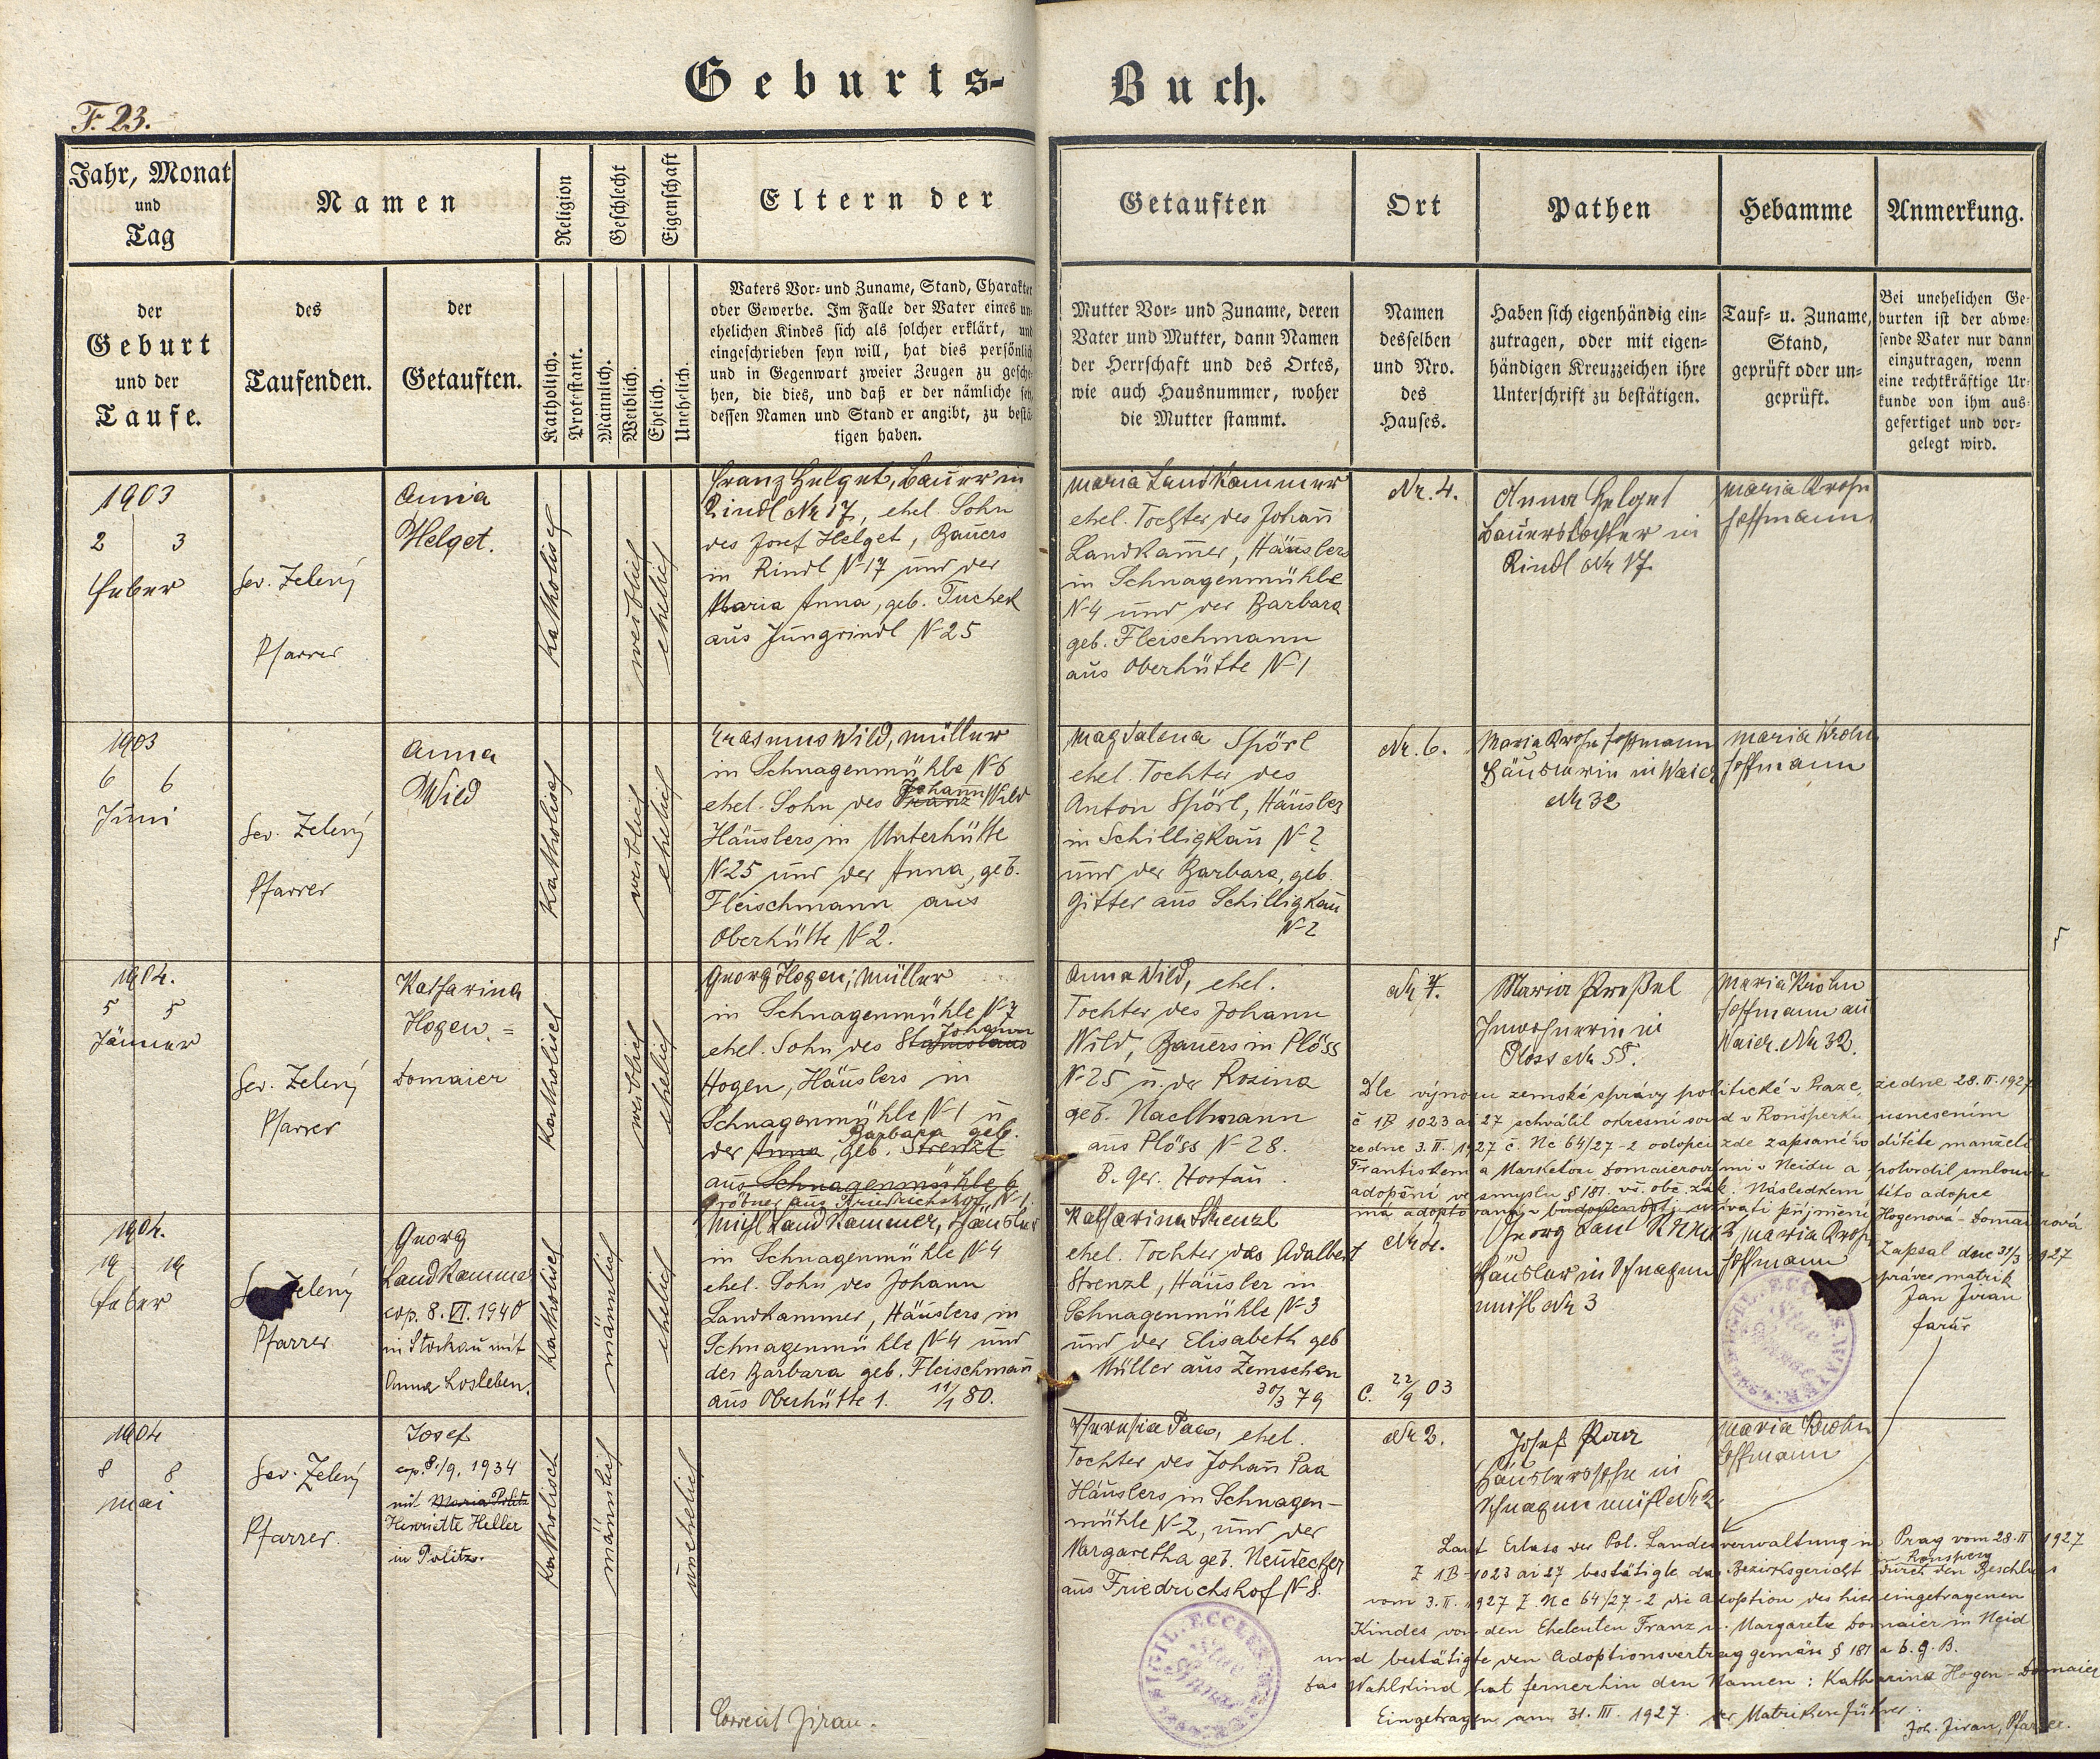 Geburts-Buch.
F. 23.
Jahr, Monat
und
Tag
Namen
Religion
Geschlecht
Eigenschaft
Eltern der
Getauften
Ort
Pathen
Hebamme
Anmerkung.
der
Geburt
und der
Taufe.
des
Taufenden.
der
Getauften.
Katholisch.
Protestant.
Männlich.
Weiblich.
Ehelich.
Unehelich.
Vaters Vor- und Zuname, Stand, Charakter
oder Gewerbe. Im Falle der Vater eines un-
ehelichen Kindes sich als solcher erklärt, und
eingeschrieben seyn will, hat dies persönlich
und in Gegenwart zweier Zeugen zu gesche-
hen, die dies, und daß er der nämliche sey,
dessen Namen und Stand er angibt, zu bestä-
tigen haben.
Mutter Vor- und Zuname, deren
Vater und Mutter, dann Namen
der Herrschaft und des Ortes,
wie auch Hausnummer, woher
die Mutter stammt.
Namen
desselben
und Nro.
des
Hauses.
Haben sich eigenhändig ein-
zutragen, oder mit eigen-
händigen Kreuzzeichen ihre
Unterschrift zu bestätigen.
Tauf- u. Zuname,
Stand,
geprüft oder un-
geprüft.
Bei unehelichen Ge-
burten ist der abwe-
sende Vater nur dann
einzutragen, wenn
eine rechtkräftige Ur-
kunde von ihm aus-
gefertiget und vor-
gelegt wird.
1903
2 3
Feber
Sev. Zelený
Pfarrer
Anna
Helget.
Katholisch
weiblich
ehelich
Franz Helget, Bauer in
Rindl Nr 17, ehel. Sohn
des Josef Helget, Bauers
in Rindl N 17 und der
Maria Anna, geb. Tuchek
aus Jungrindl N 25
Maria Landkammer
ehel. Tochter des Johann
Landkamer, Häuslers
in Schnagenmühle
N 4 und der Barbara
geb. Fleischmann
aus Oberhütte N 1
Nr. 4.
Anna Helget
Bauerstochter in
Rindl Nr 17.
Maria Krohn
Hoffmann
1903
6 6
Juni
Sev. Zelený
Pfarrer
Anna
Wild
Katholisch
weiblich
ehelich
Erasmus Wild, Müller
in Schnagenmühle N 6
ehel. Sohn des Franz Johann Wild
Häuslers in Unterhütte
N 25 und der Anna, geb.
Fleischmann aus
Oberhütte N 2.
Magdalena Spörl
ehel. Tochter des
Anton Spörl, Häusler
in Schilligkau N 2
und der Barbara, geb.
Gitter aus Schilligkau
N 2
Nr. 6.
Maria Krohn Hoffmann
Häuslerin in Waier
Nr 32
Maria Krohn
Hoffmann
1904.
5 5
Jänner
Sev. Zelený
Pfarrer
Katharina
Hogen =
Domaier
Katholisch
weiblich
ehelich
Georg Hogen, Müller
in Schnagenmühle N 7
ehel. Sohn des Stanislaus Johann
Hogen, Häuslers in
Schnagenmühle N 1 u
der Anna, geb. Strenzl Barbara geb.
aus Schnagenmühle 6
Gröbner aus Friedrichshof N 1.
Anna Wild, ehel.
Tochter des Johann
Wild, Bauers in Plöss
N 25 u. der Rosina
geb. Nachtmann
aus Plöss N 28.
B. Ger. Hostau
Nr 7.
Maria Preßel
Inwohnerin in
Plöss Nr 55.
Maria Krohn
Hoffmann aus
Waier Nr 32.
Dle výnosu zemské správy politické v Praze, ze dne 28. II. 1927
č 1B 1023 ai 27 schválil okresní soud v Ronšperku usnesením
ze dne 3. II. 1927 č. Nc 64/27-2 adopci zde zapsaného dítěte manželi
Františkem a Marketou Domaierovými v Neidu a potvrdil smlouvu
adopční ve smyslu § 181. vš. obč. zák. Následkem této adopce
má adoptovaná v budoucnosti užívati příjmení Hogenová-Domaierová
Zapsal dne 31/3 1927
správce matrik
Jan Jiran
farář
1904.
19 19
Feber
Sev. Zelený
Pfarrer
Georg
Landkammer
cop. 8. VI. 1940
in Stockau mit
Anna Losleben.
Katholisch
männlich
ehelich
Michl Landkammer, Häusler
in Schnagenmühle N 4
ehel. Sohn des Johann
Landkammer, Häuslers in
Schnagenmühle N 4 und
der Barbara geb. Fleischmann
aus Oberhütte 1. 11/1 80.
Katharina Strenzl
ehel. Tochter des Adalbert
Strenzl, Häusler in
Schnagenmühle N 3
und der Elisabeth geb
Müller aus Zemschen
30/3 79
C. 22/9 03
Nr 4.
Häusler in Schnagen
mühl Nr 3
Maria Krohn
Hoffmann
1904
8 8
Mai
Sev. Zelený
Pfarrer.
Josef
cop. 8./9. 1934
mit Maria Politz
Henriette Heller
in Politz.
Katholisch
männlich
unehelich
Theresia Paa, ehel.
Tochter des Johann Paa
Häuslers in Schnagen-
mühle N 2, und der
Margaretha geb. Neubecker
aus Friedrichshof N 8.
Nr 2.
Josef Paa
Häuslerssohn in
Schnagenmühl Nr 2
Maria Krohn
Hoffmann
Laut Erlass der Pol. Landesverwaltung in Prag vom 28. II 1927
Z 1B-1023 ai 27 bestätigte das Bezirksgericht in Ronsperg durch den Beschluss
vom 3. II. 1927 Z. Nc 64/27-2 die Adoption des hier eingetragenen
Kindes von den Eheleuten Franz u. Margarete Domaier in Neid
und bestätigte den Adoptionsvertrag gemäss § 181 a b. g. B.
Das Wahlkind hat fernerhin den Namen: Katharina Hogen-Domaier
Eingetragen am 31. III. 1927. der Matrikenführer:
Joh. Jiran, Pfarrer.
Correcit Jiran.